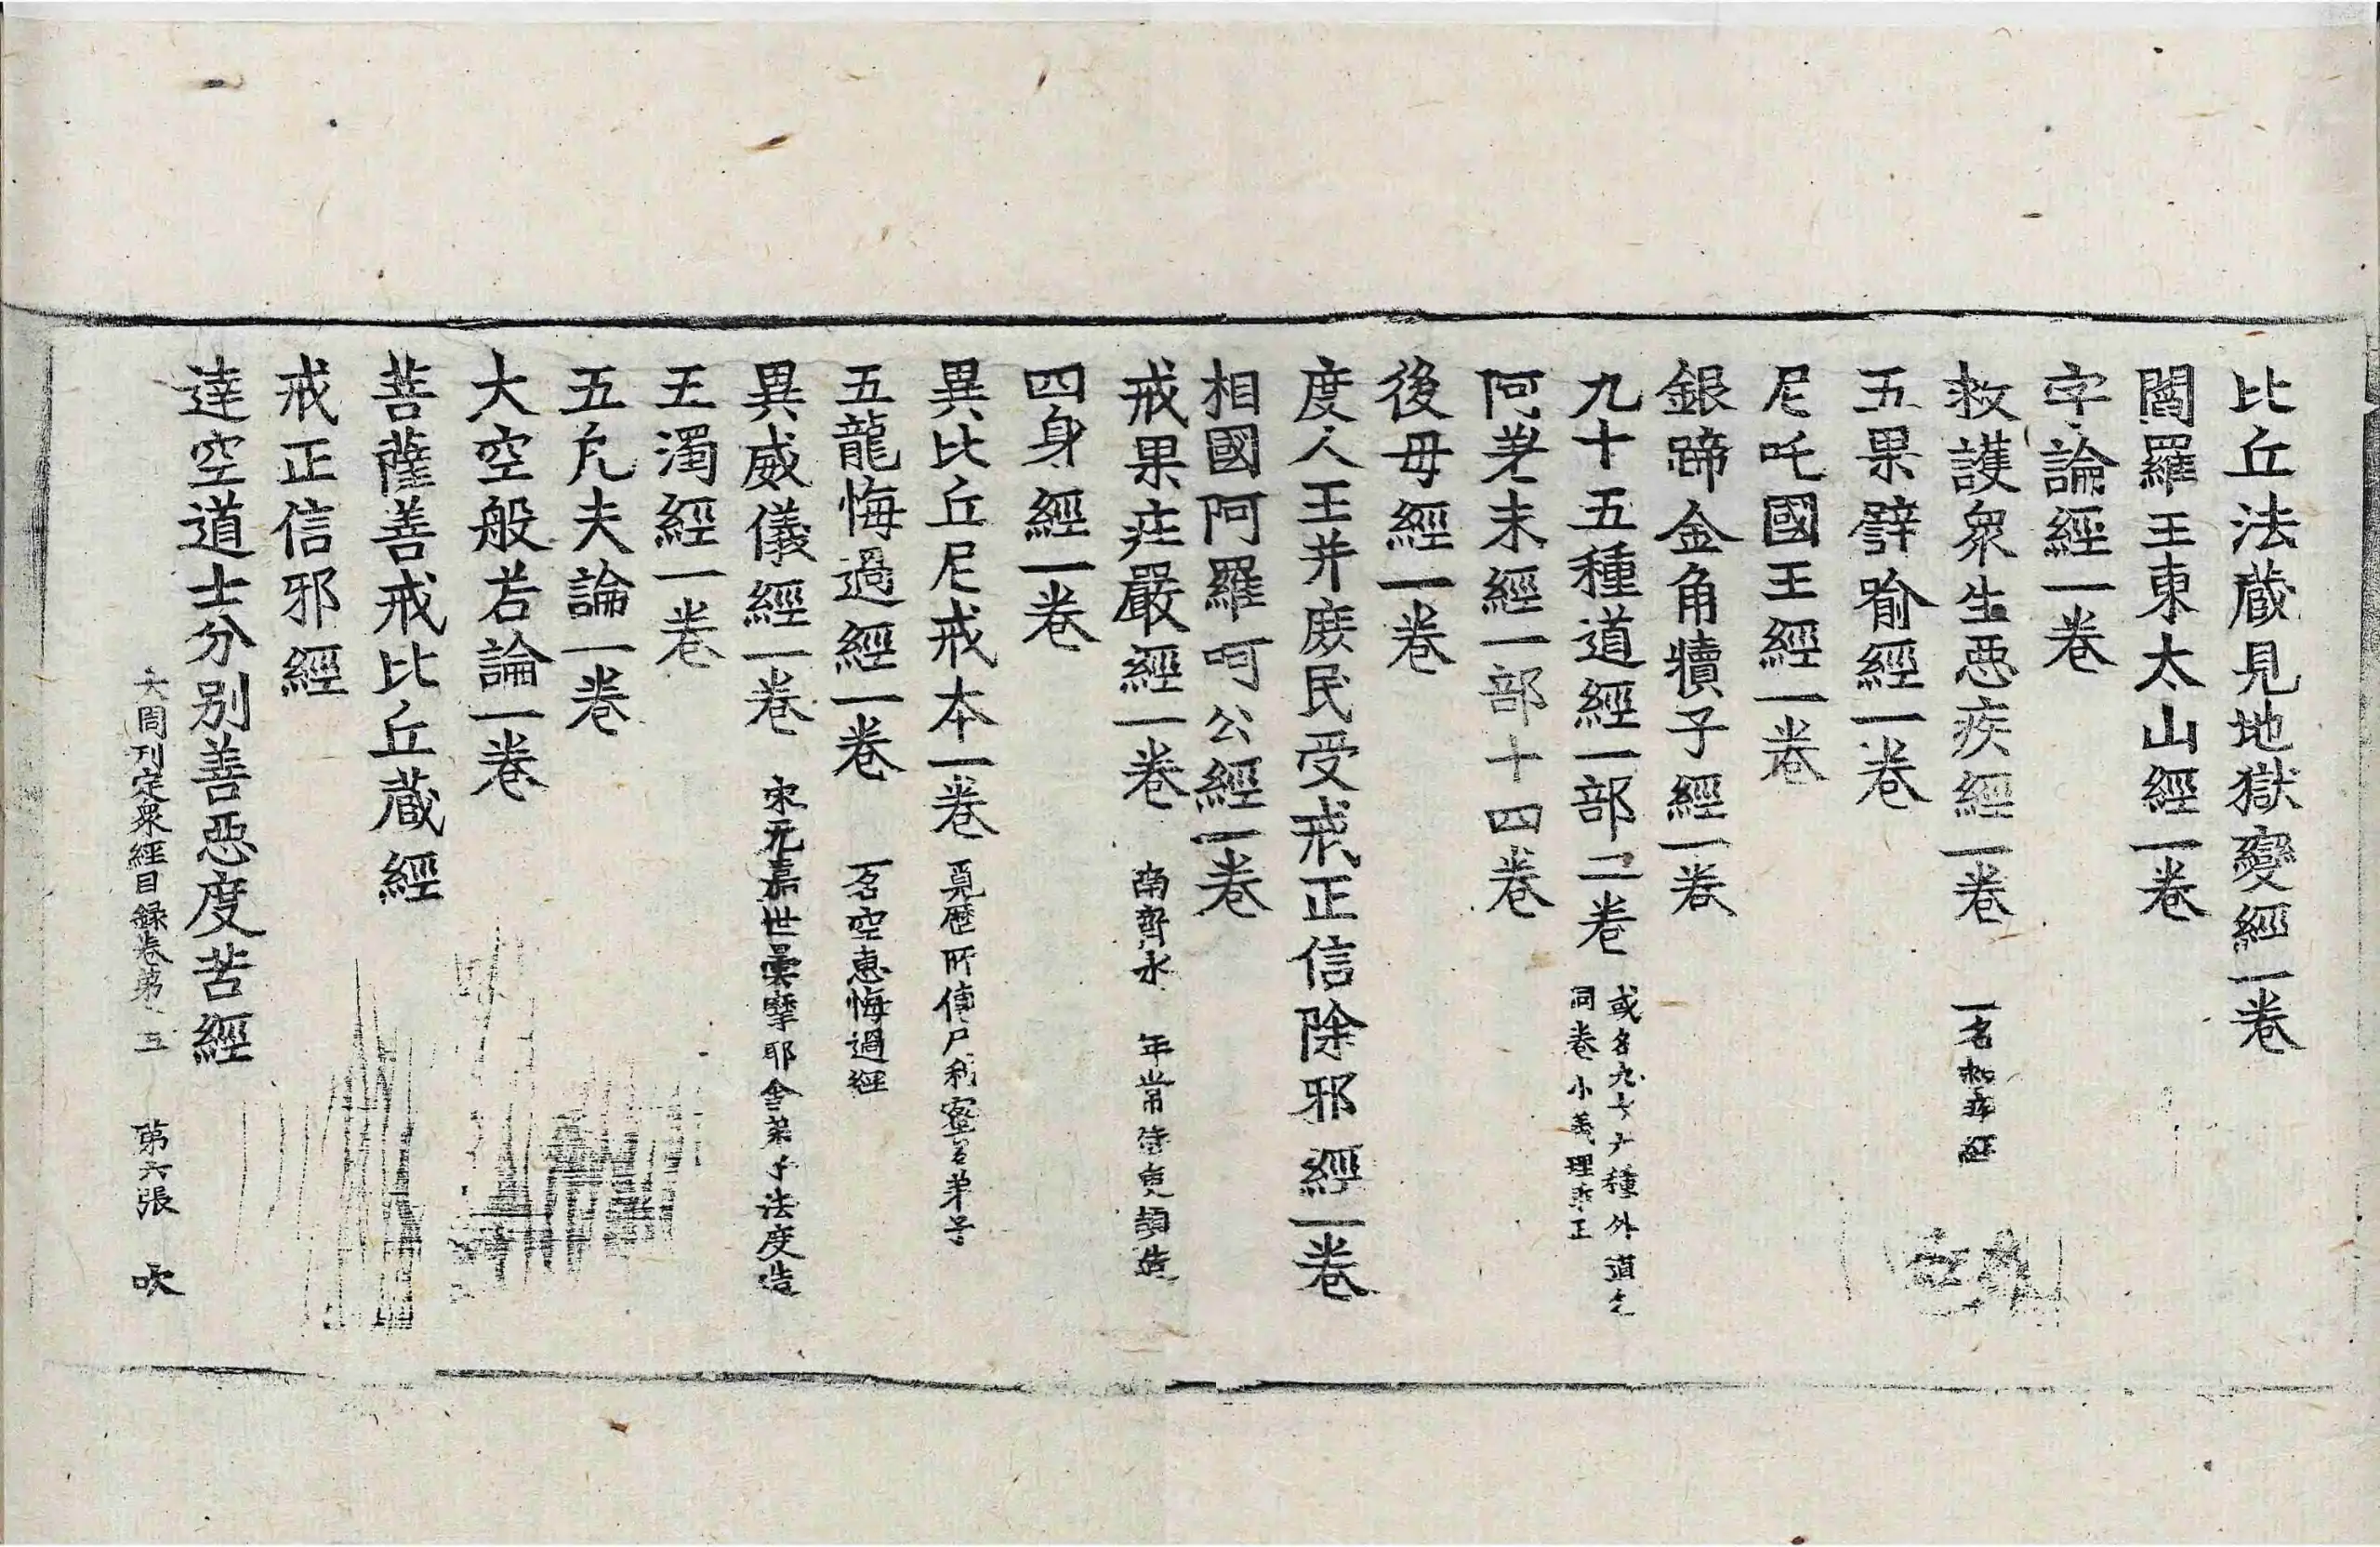 比丘法蔵見地獄變經一卷
閻羅王東太山經一卷
字論經一卷
救護衆生惡疾經一卷 一名救病經
五果譬喻經一卷
尼吒國王經一卷
銀蹄金角犢子經一卷
九十五種道經一部二卷 或名九十六種外道
同卷小義理乖正
阿差末經一部十四卷
後母經一卷
度人王并庶民受戒正信除邪經一卷
相國阿羅呵公經一卷
戒果莊嚴經一卷 南齊永 年常侍庾頡造
四身經一卷
異比丘尼戒本一卷 覓歷所傳尸利蜜弟子
五龍悔過經一卷 一名空惠悔過經
異威儀經一卷 宋元嘉世曇摩耶舍弟子法度造
五濁經一卷
五凡夫論一卷
大空般若論一卷
菩薩善戒比丘蔵經
戒正信邪經
達空道士分別善惡度苦經
大周刊定衆經目録卷第 五 第六張 吹